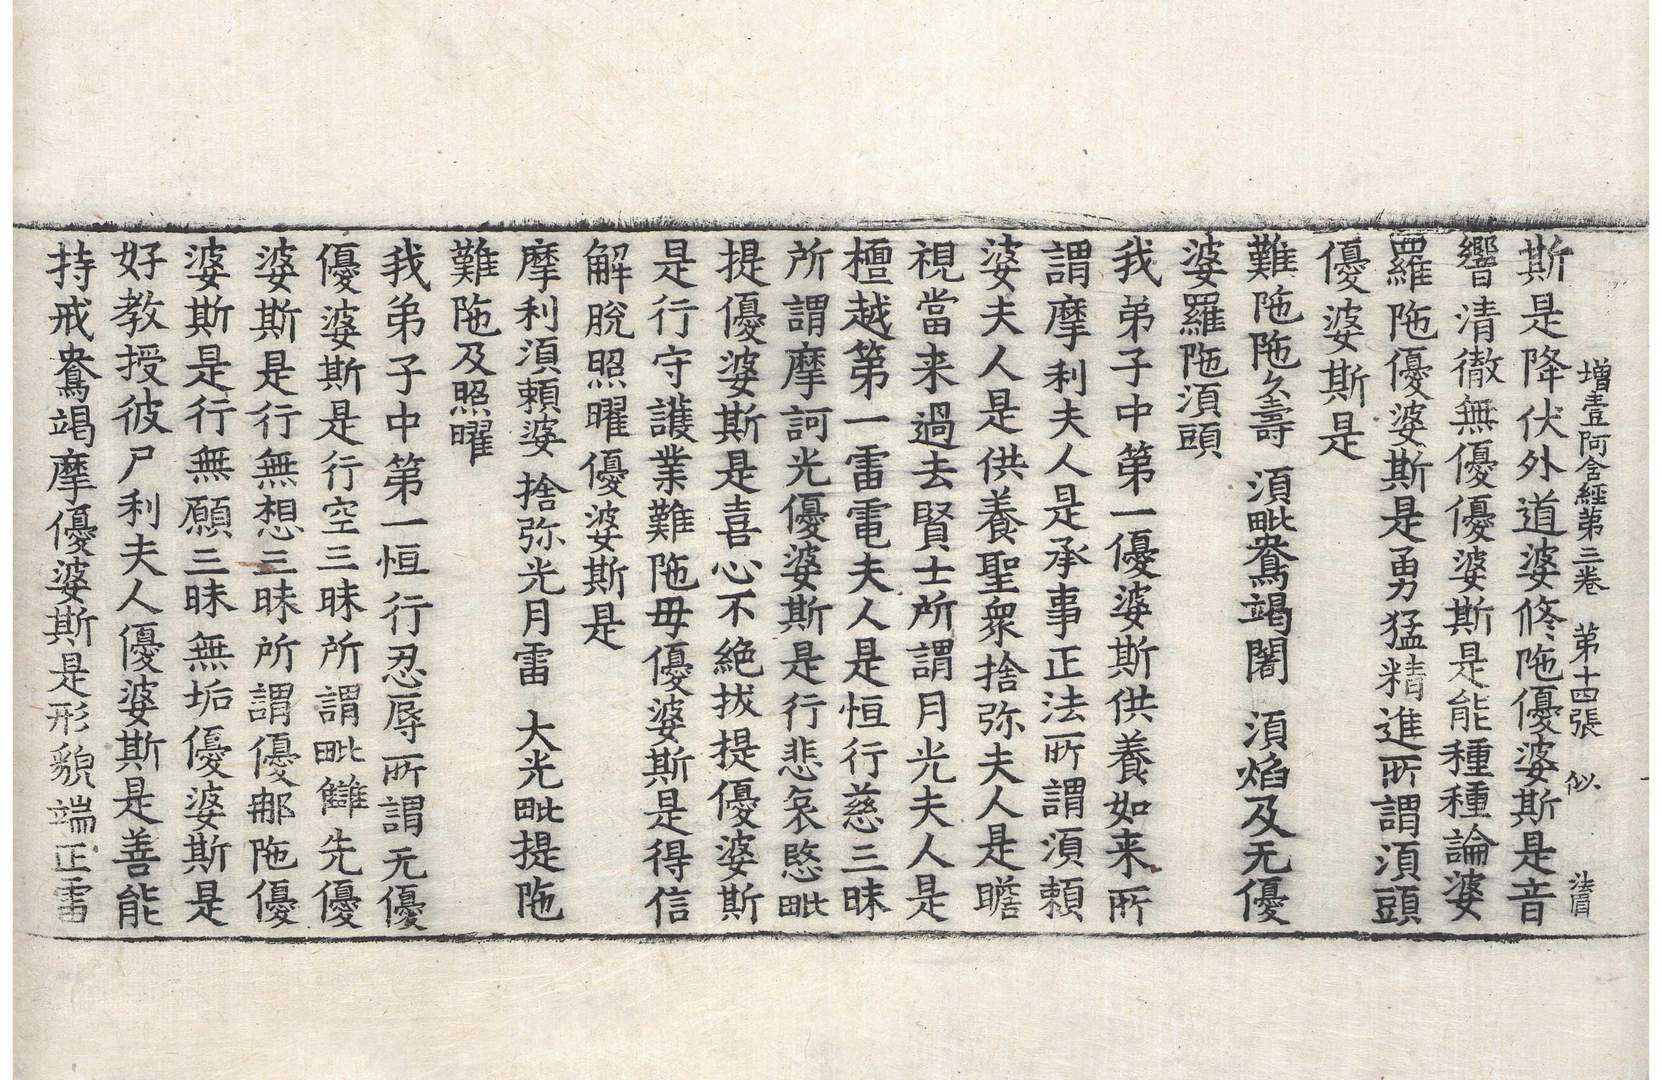 增壹阿含經第三卷　第十四張　似　法眉
斯是降伏外道婆修陁優婆斯是音
響清徹無優優婆斯是能種種論婆
羅陁優婆斯是勇猛精進所謂須頭
優婆斯是
難陁陁久壽　須毗鴦竭闍　須焰及无優
婆羅陁須頭
我弟子中第一優婆斯供養如来所
謂摩利夫人是承事正法所謂須賴
婆夫人是供養聖衆捨弥夫人是瞻
視當来過去賢士所謂月光夫人是
檀越第一雷電夫人是恒行慈三昧
所謂摩訶光優婆斯是行悲哀愍毗
提優婆斯是喜心不絶拔提優婆斯
是行守護業難陁毋優婆斯是得信
解脫照曜優婆斯是
摩利須賴婆　捨弥光月雷　大光毗提陁
難陁及照曜
我弟子中第一恒行忍辱所謂无優
優婆斯是行空三昧所謂毗讎先優
婆斯是行無想三昧所謂優那陁優
婆斯是行無願三昧無垢優婆斯是
好教授彼尸利夫人優婆斯是善能
持戒鴦竭摩優婆斯是形貌端正雷